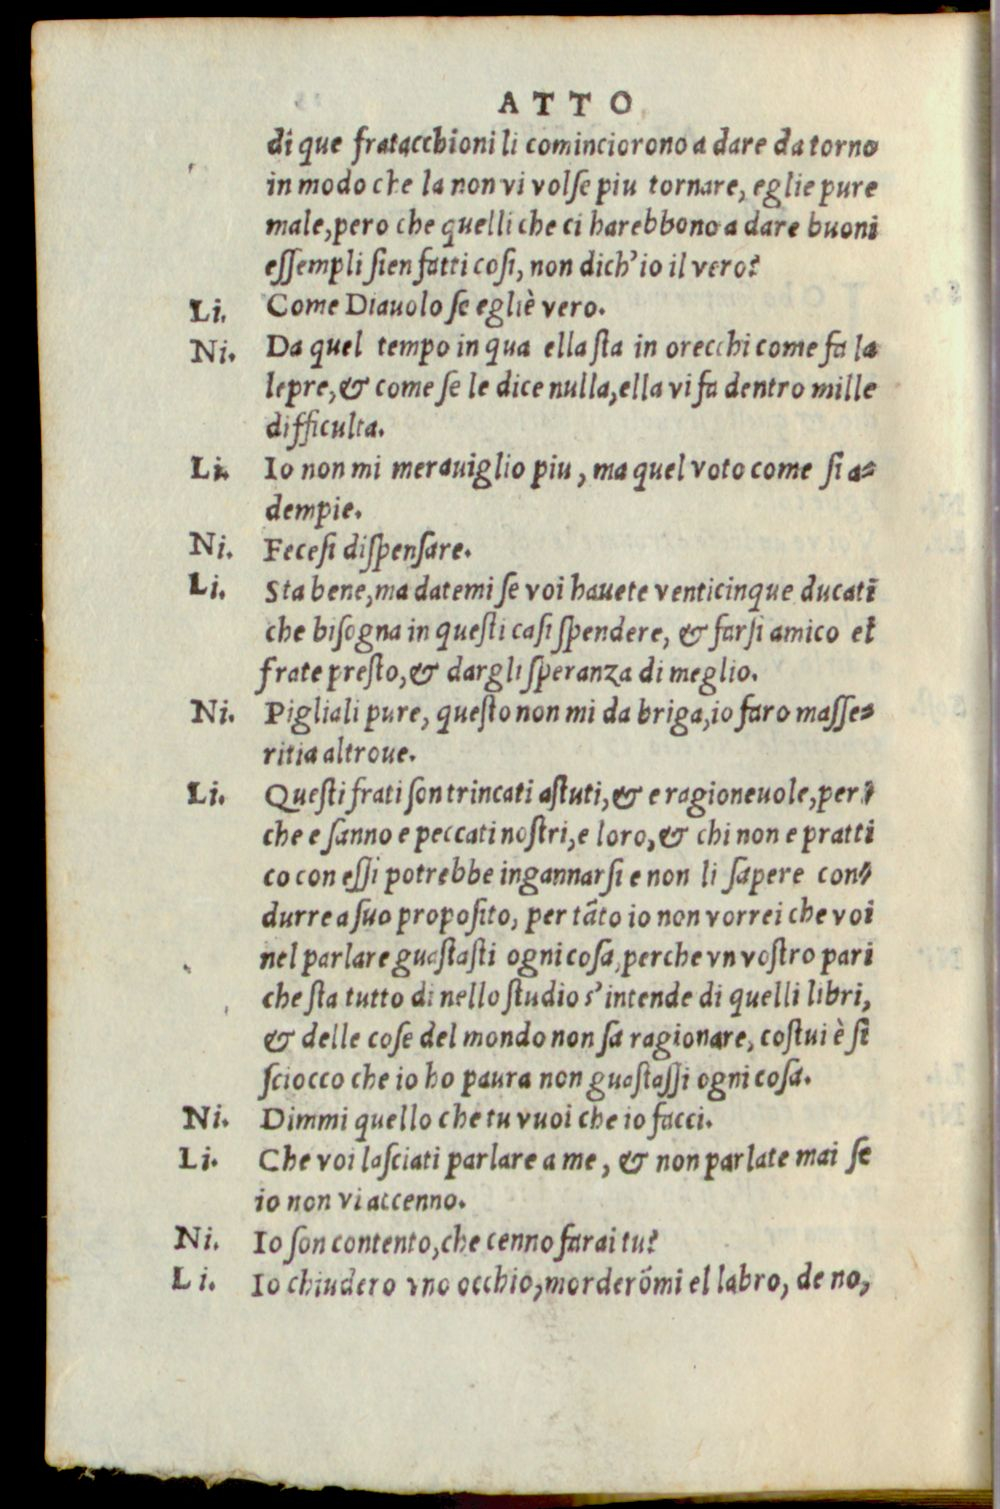 ATTO
di que fratacchioni li cominciorono a dare da torno
in modo che la non vi volſe piu tornare, eglie pure
male, pero che quelli che ci harebbono a dare buoni
eſſempli ſien fatti coſi, non dich'io il vero?
Li. Come Diauolo ſe egliè vero.
Ni. Da quel tempo in qua ella ſta in orecchi come fa la
lepre, & come ſe le dice nulla, ella vi fa dentro mille
difficulta.
Li. Io non mi merauiglio piu, ma quel voto come ſi a-
dempie.
Ni. Feceſi diſpenſare.
Li. Sta bene, ma datemi ſe voi hauete venticinque ducati
che biſogna in queſti caſi ſpendere, & farſi amico el
frate preſto, & dargli ſperanza di meglio.
Ni. Pigliali pure, queſto non mi da briga, io faro maſſe-
ritia altroue.
Li. Queſti frati ſon trincati aſtuti, & e ragioneuole, per-
che e ſanno e peccati noſtri, e loro, & chi non e pratti
co con eſſi potrebbe ingannarſi e non li ſapere con-
durre a ſuo propoſito, per tãto io non vorrei che voi
nel parlare guaſtaſti ogni coſa, perche vn voſtro pari
che ſta tutto di nello ſtudio s'intende di quelli libri,
& delle coſe del mondo non ſa ragionare, coſtui è ſi
ſciocco che io ho paura non guaſtaſſi ogni coſa.
Ni. Dimmi quello che tu vuoi che io facci.
Li. Che voi laſciati parlare a me, & non parlate mai ſe
io non vi accenno.
Ni. Io ſon contento, che cenno farai tu?
Li. Io chiudero vno occhio, morderõmi el labro, de no,